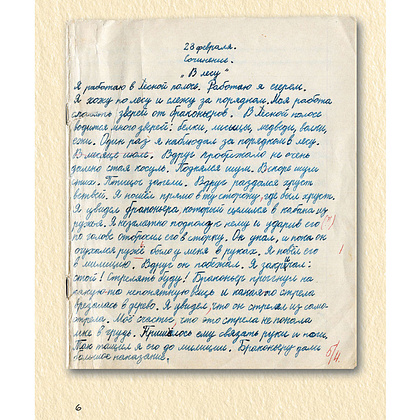 23 февраля.
Сочинение.
„В лесу"
Я работаю в лесной полосе. Работаю я егерем.
Я хожу по лесу и слежу за порядком. Моя работа
спасать зверей от браконьеров. В лесной полосе
водится много зверей: белки, лисицы, медведи, волки,
еси. Один раз я наблюдал за порядком в лесу.
В месяце июле. Вдруг пробежало не очень
далеко стая косуль. Поднялся шум. Вскоре шум
стих. Птицы запели. Вдруг раздался хруст
ветвей. Я пошёл прямо в ту сторону, где был хруст.
Я увидел браконьера, который целился в кабана из
ружья. Я незаметно подполз к нему и ударив его
по голове отбросил его в сторону. Он упал, и пока он
очухался ружьё было у меня в руках. Я повёл его
в милицию. Вдруг он побежал. Я закричал:
стой! Стрелять буду! Браконьер прыгнул на
какую-то непонятную вещь и какая-то стрела
врезалась в дерево. Я увидел, что он стрелял из само
стрела. Моё счастье, что это стрела не попала
мне в грудь. Пришлось ему связать руки и ноги.
Так тащил я его до милиции. Браконьеру дали
большое наказание.
5/4.
6